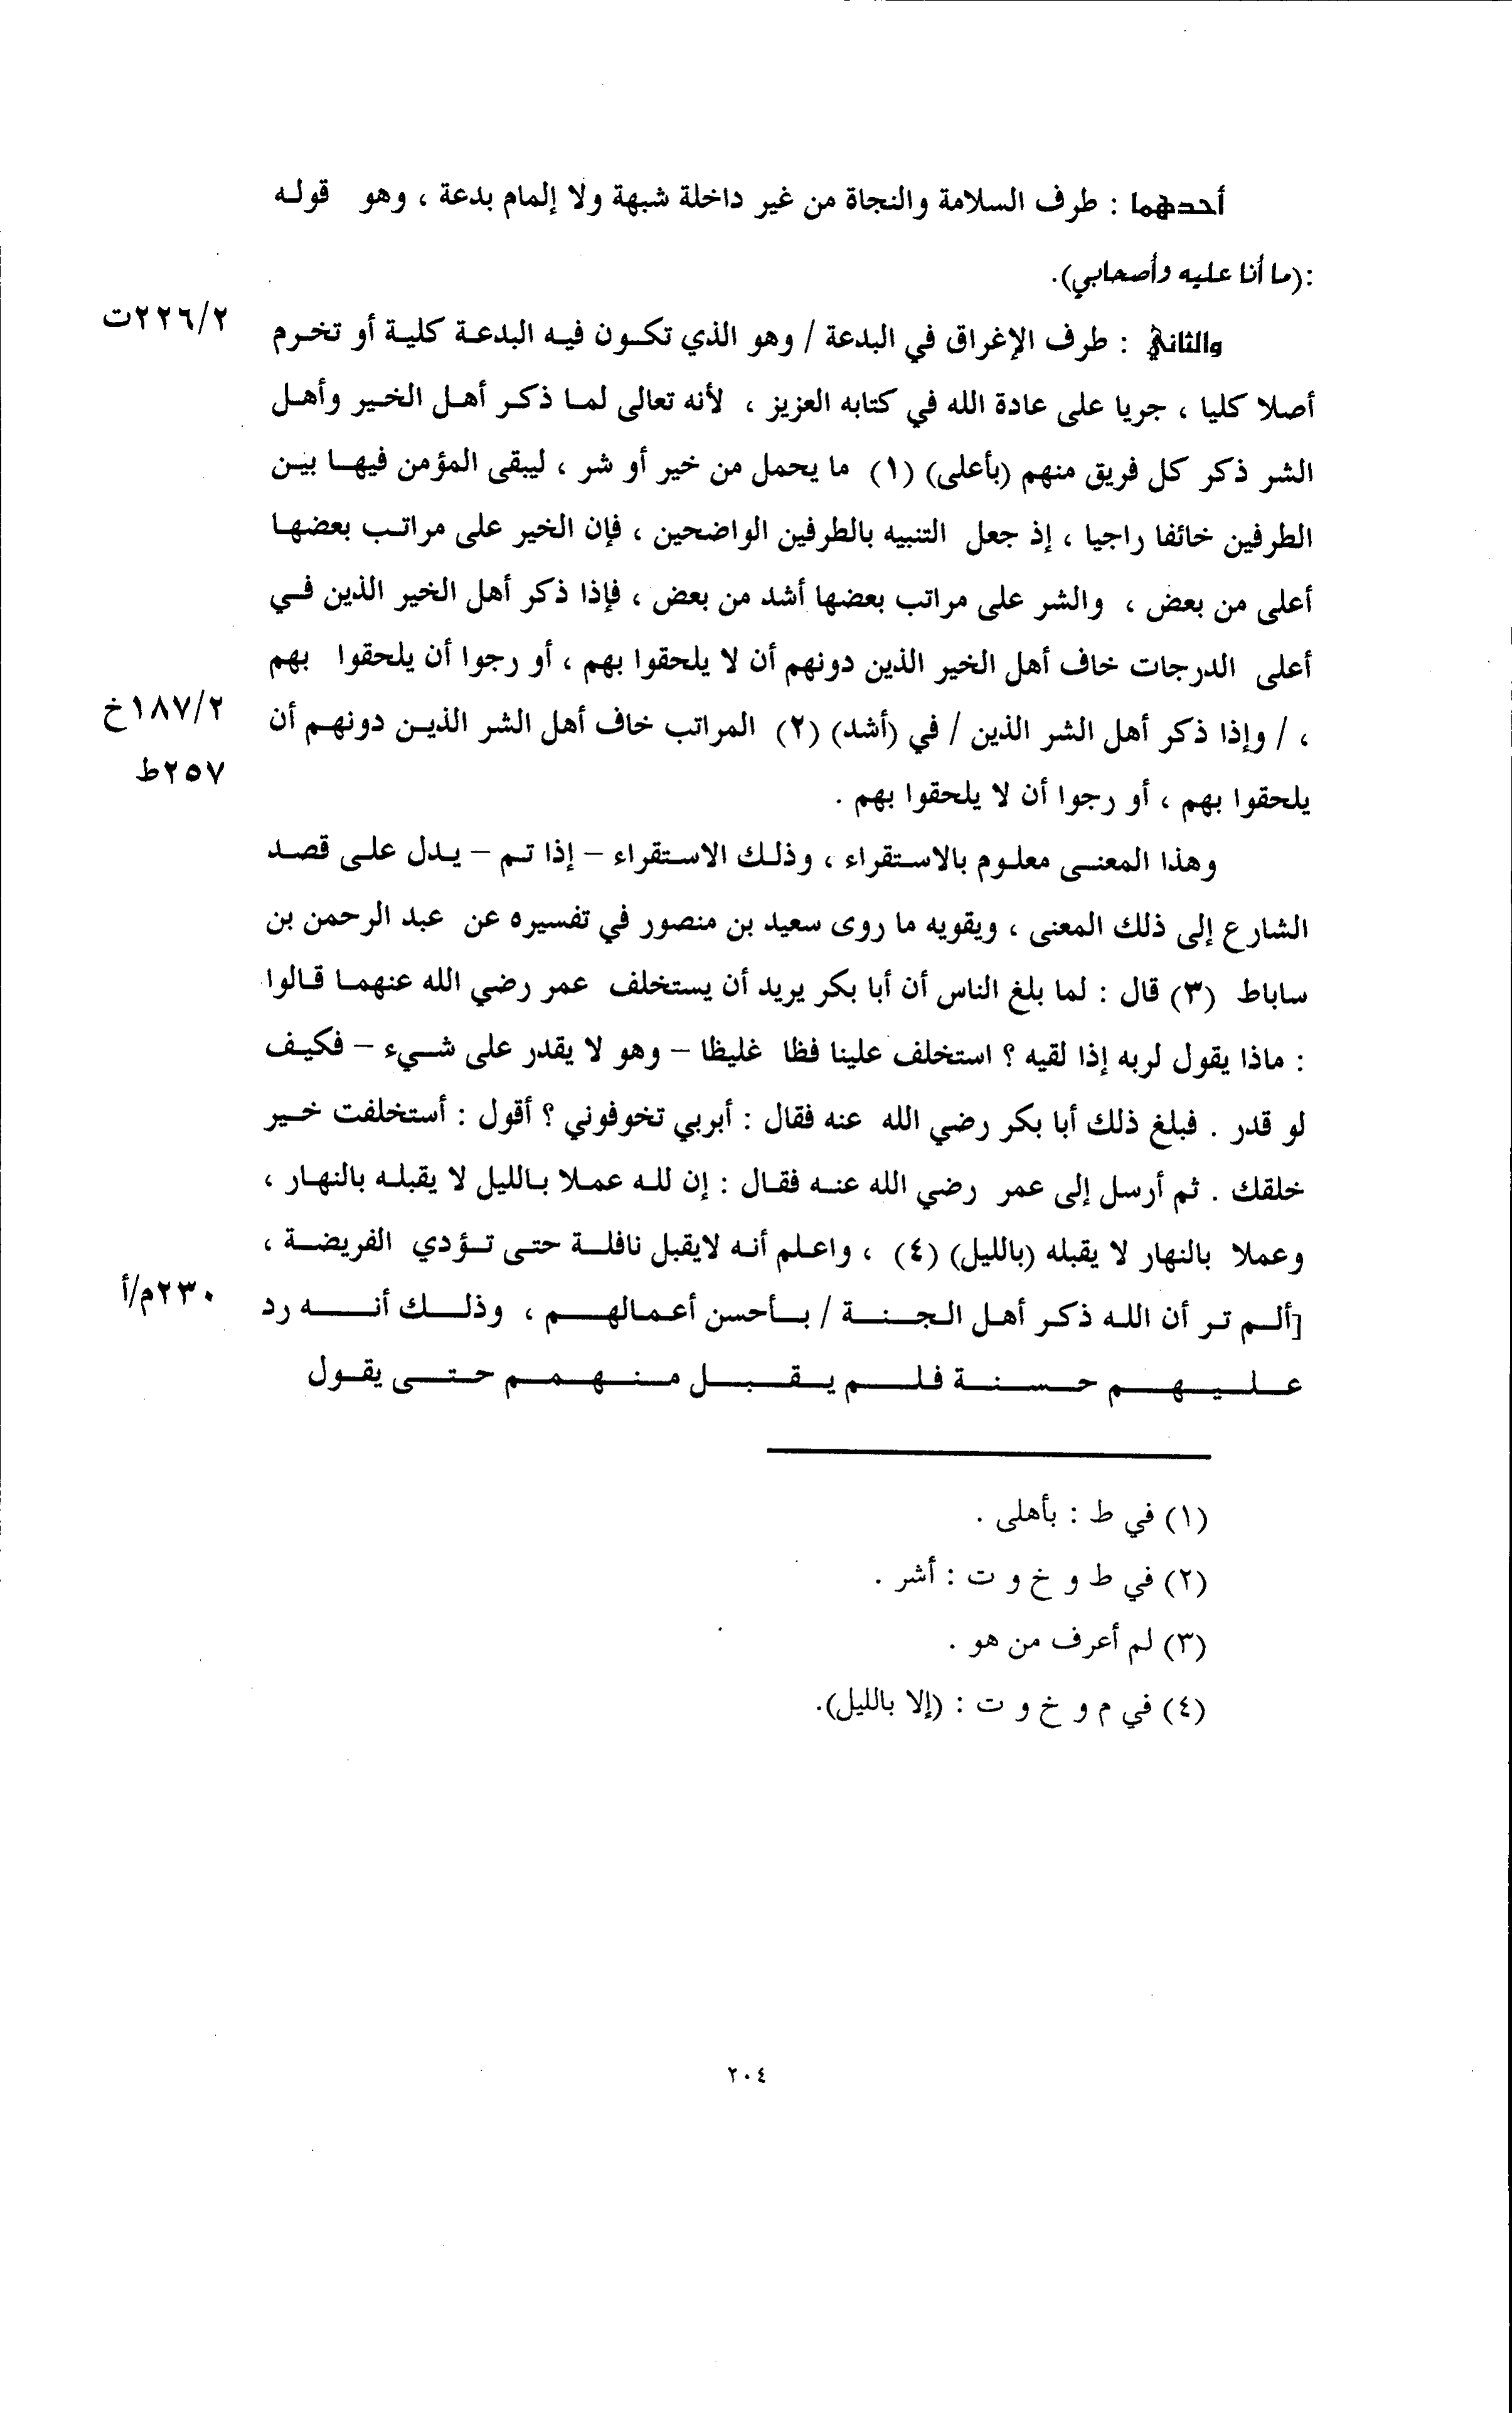 أحدهما : طرف السلامة والنجاة من غير داخلة شبهة ولا إلمام بدعة ، وهو قوله
:(ما أنا عليه وأصحابي).
والثاني : طرف الإغراق في البدعة / وهو الذي تكون فيه البدعة كلية أو تخرم
٢٢٦/٢ت
أصلا كليا ، جريا على عادة الله في كتابه العزيز ، لأنه تعالى لما ذكر أهل الخير وأهل
الشر ذكر كل فريق منهم (بأعلى) (١) ما يحمل من خير أو شر ، ليبقى المؤمن فيها بين
الطرفين خائفا راجيا ، إذ جعل التنبيه بالطرفين الواضحين ، فإن الخير على مراتب بعضها
أعلى من بعض ، والشر على مراتب بعضها أشد من بعض ، فإذا ذكر أهل الخير الذين في
أعلى الدرجات خاف أهل الخير الذين دونهم أن لا يلحقوا بهم ، أو رجوا أن يلحقوا بهم
، / وإذا ذكر أهل الشر الذين / في (أشد) (٢) المراتب خاف أهل الشر الذين دونهم أن
١٨٧/٢خ
٢٥٧ط
يلحقوا بهم ، أو رجوا أن لا يلحقوا بهم .
وهذا المعنى معلوم بالاستقراء ، وذلك الاستقراء – إذا تم – يدل على قصد
الشارع إلى ذلك المعنى ، ويقويه ما روى سعيد بن منصور في تفسيره عن عبد الرحمن بن
ساباط (٣) قال : لما بلغ الناس أن أبا بكر يريد أن يستخلف عمر رضي الله عنهما قالوا
: ماذا يقول لربه إذا لقيه ؟ استخلف علينا فظا غليظا – وهو لا يقدر على شيء – فكيف
لو قدر . فبلغ ذلك أبا بكر رضي الله عنه فقال : أبربي تخوفوني ؟ أقول : أستخلفت خير
خلقك . ثم أرسل إلى عمر رضي الله عنه فقال : إن لله عملا بالليل لا يقبله بالنهار ،
وعملا بالنهار لا يقبله (بالليل) (٤) ، واعلم أنه لايقبل نافلة حتى تؤدي الفريضة ،
[ألم تر أن الله ذكر أهل الجنة / بأحسن أعمالهم ، وذلك أنه رد
٢٣٠م/أ
عليهم حسنة فلم يقبل منهم حتى يقول
(١) في ط : بأهلى .
(٢) في ط و خ و ت : أشر .
(٣) لم أعرف من هو .
(٤) في م و خ و ت : (إلا بالليل).
٢٠٤